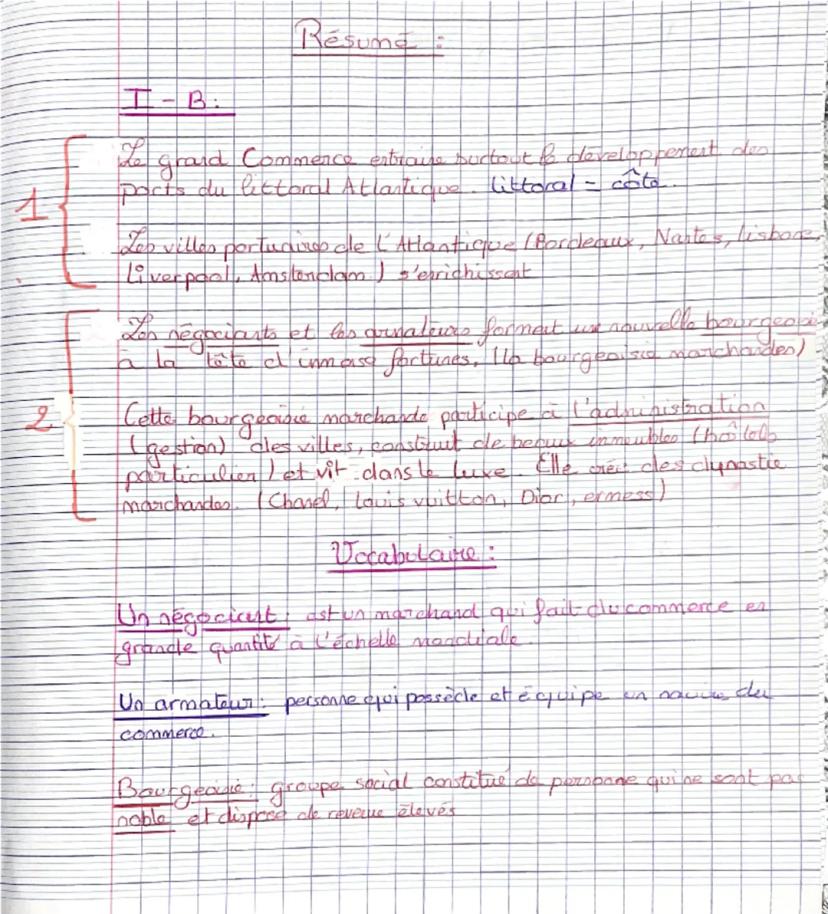 Résumé :
I - B :
Le grand Commerce entraine surtout le développement des
ports du littoral Atlantique. littoral = côte.
1
Les villes portuaires de l'Atlantique (Bordeaux, Nantes, lisbone,
Liverpool, Amsterdam) s'enrichissent
Les négociants et les armateurs forment un nouvelle bourgeoisi
à la tête d'inmase fortunes, (la bourgeoisie marchanden)
2
Cette bourgeoisie marchande participe à l'administration
(gestion) des villes, construit de beaux immeubles (hôtels
particulier) et vit dans le luxe. Elle crée des dynastie
marchandes. (Chanel, Louis vuitton, Dior, ermess)
Vocabulaire :
Un négociant : est un marchand qui fait du commerce en
grande quantité à l'échelle mondiale.
Un armateur : personne qui possède et équipe un navire du
commerce.
Bourgeoisie : groupe social constitué de personne qui ne sont pas
noble et dispose de revenue élevés